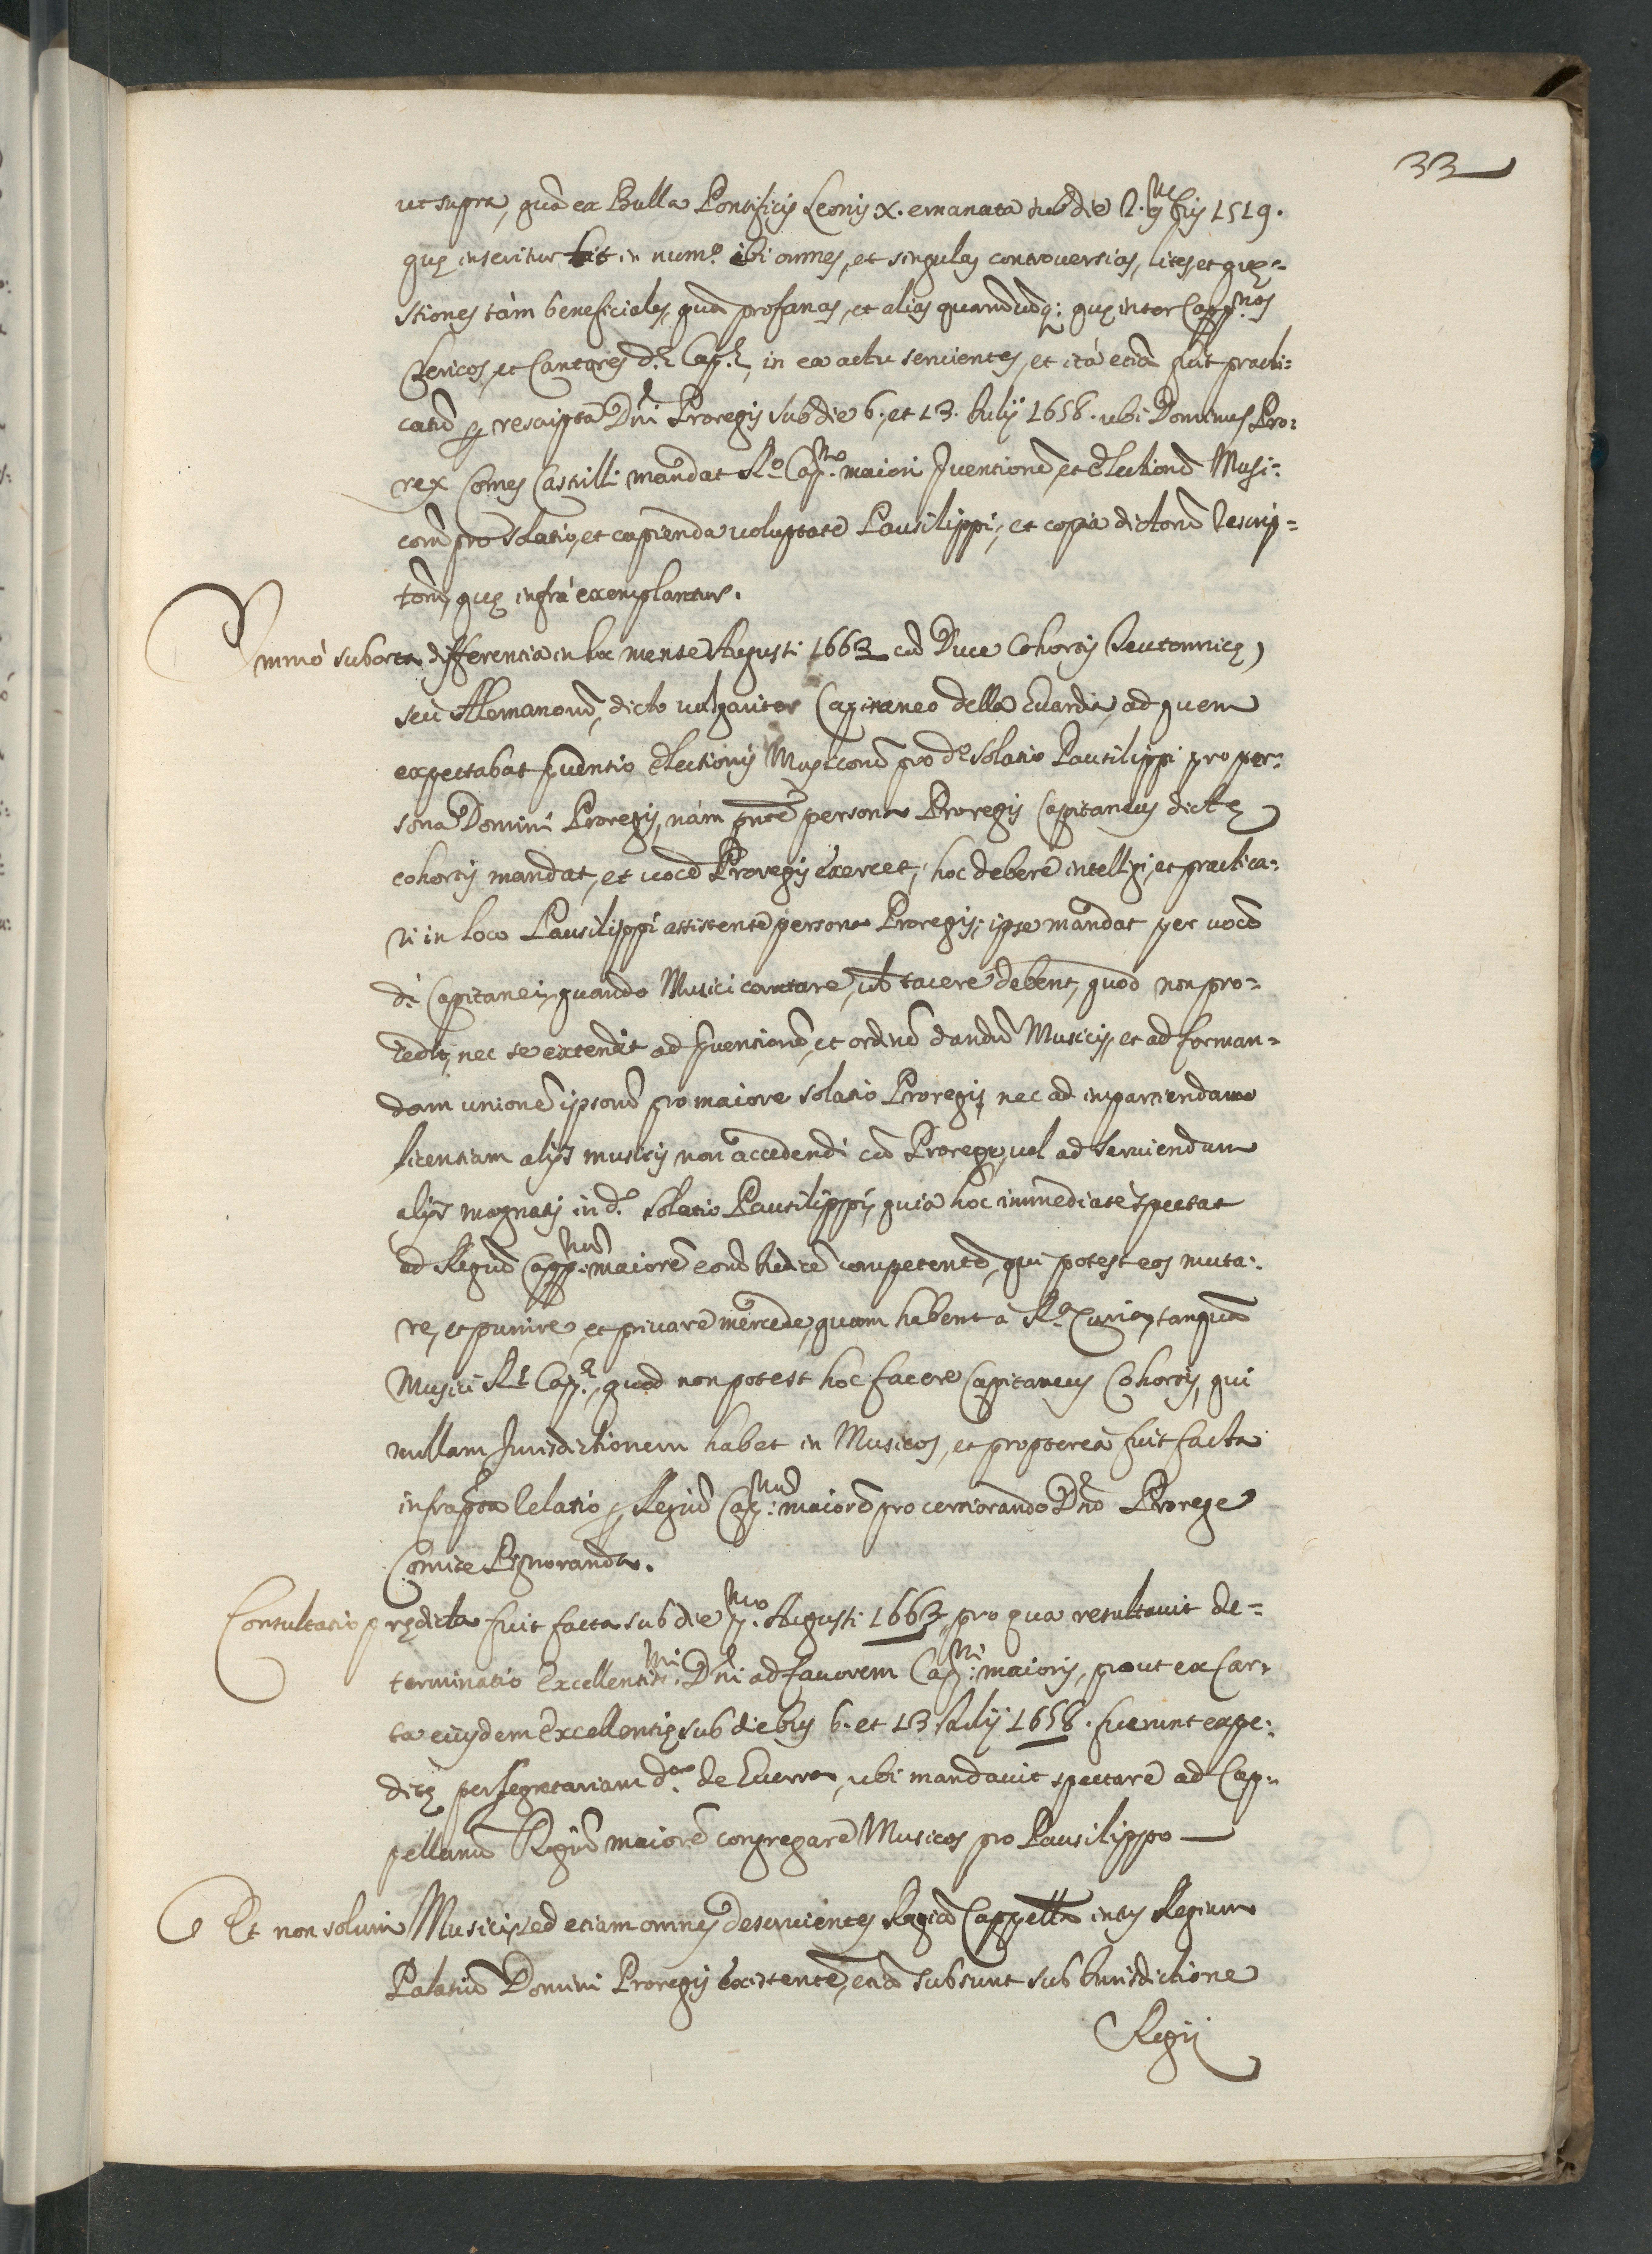 33
ut supra, quã ex Bulla Pontificis Leonis X. emanata sub die 1519.
quę inseritur in num.º ibi omnes, et singulas controversias, lites, et quę-
stiones tàm beneficiales, quã profanas, et alias quascũq: quę inter Capp.nos
Clericos, et Cantores d.ę Cap.ę, in ea actu servientes, et ità etiã fuit practi:
catũ rescripta Dñi Proregis sub die 6. et 13. Iulij 1658. ubi Dominus Pro:
rex Comes Castrilli mandat R.º Cap.no maiori Iuentionẽ, et Electionẽ Musi:
corũ pro solatio, et capienda voluptate Pausilippi, et copia dictorũ rescrip-
torũ, quę infrà exemplantur.
Immò suborta differentia in hoc mense Augusti 1663 cũ Duce Cohortis Teutonnicę,
seù Alemanorũ, dicto vulgariter Capitaneo della Guardia, ad quem
expectabat Iuentio Electionis Musicorũ pro d.º solatio Pausilippi pro per:
sona Domini Proregis, nàm pñte persona Proregis Capitaneus dictę
cohortis mandat, et vocẽ Proregis exercet, hoc debere intelligi, et practica:
ri in loco Pausilippi assistente persona Proregis, ipse mandat per vocẽ
d.i Capitanei, quando Musici cantare, vel tacere debent, quod non pro-
cedit, nec se extendit ad Iuentionẽ, et ordinẽ dandũ Musicis, et ad forman-
dam unionẽ ipsorũ pro maiore solatio Proregis, nec ad impartiendam
licentiam alijs musicis non accedendi cũ Prorege, vel ad serviendum
alijs magnatis in d.º solatio Pausilippi, quia hoc immediatè spectat
ad Regiũ Capp.nũ maiorẽ eorũ Iudicẽ competentẽ, qui potest eos muta:
re, et punire, et privare mercede, quam habent a R.a Curia, tanquã
Musici R.ę Cap.ę, quod non potest hoc facere Capitaneus Cohortis, qui
nullam Iurisdictionem habet in Musicos, et proptereà fuit facta
infrapta relatio Regiũ Cap.nũ maiorẽ pro certiorando Dño Prorege
Comite Pignoranda.
Consultatio prędicta fuit facta sub die Augusti 1663, pro qua resultavit de-
terminatio Excellentis.mi Dñi ad favorem Cap.ni maioris, prout ex Car:
ta eiusdem Excellentię sub diebus 6. et 13. Iulij 1658. fuerunt expe:
ditę per segretariam d.am de Guerra, ubi mandavit spectare ad Cap-
pellanũ Regiũ maiorẽ congregare Musicos pro Pausilippo —
Et non solum Musicis, sed etiam omnes deservientes Regia Cappella intus Regium
Palatiũ Domini Proregis existente, etiã subsunt sub Iurisdictione
Regij